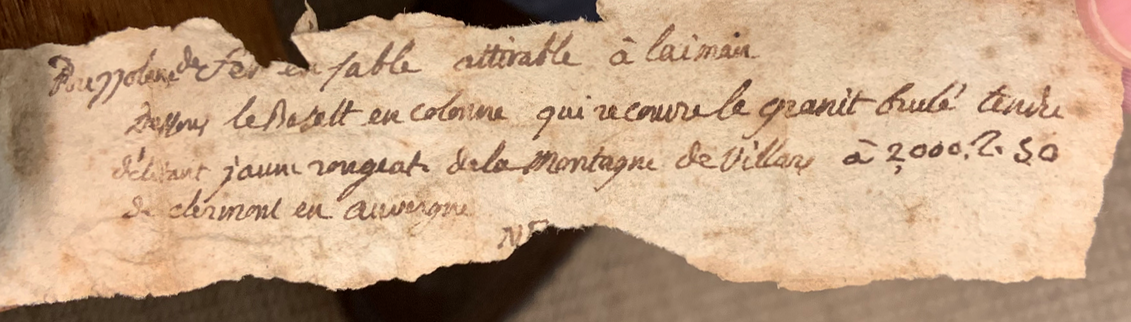 Pouzzolene de fer en sable attirable à laiman
dessous le Basalt en colonne qui recouvre le granit brulé tendre
délitant jaune rougeatre de la Montagne de Villars à 2,000. S.O
de clermont en auvergne